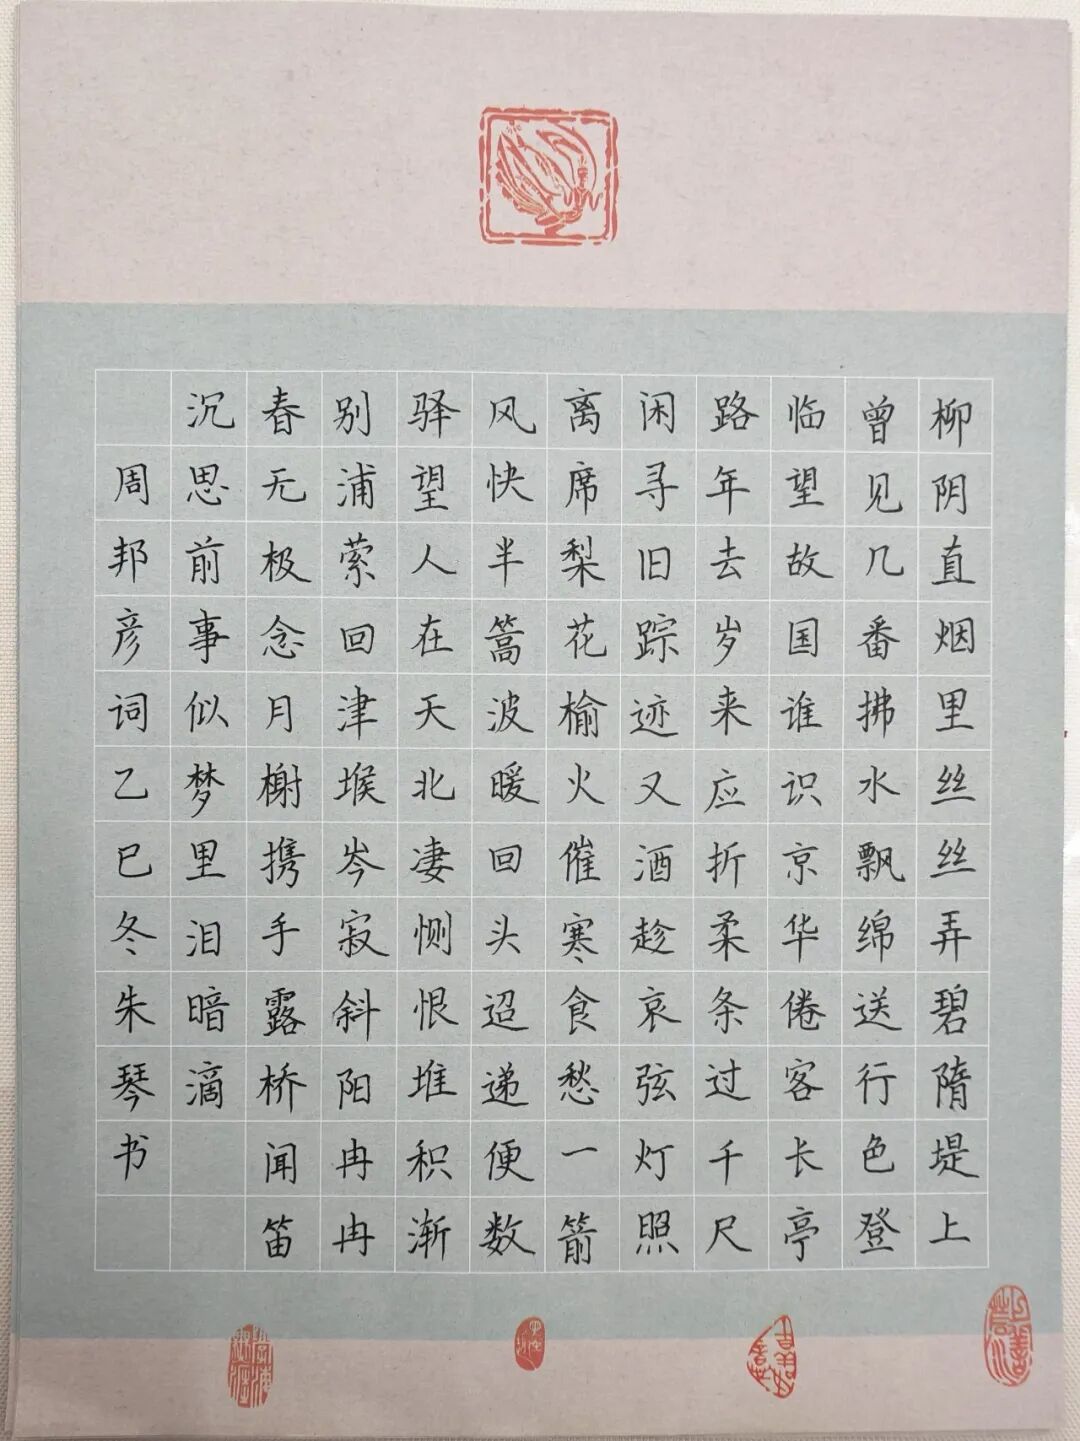 柳阴直烟里丝丝弄碧隋堤上
曾见几番拂水飘绵送行色登
临望故国谁识京华倦客长亭
路年去岁来应折柔条过千尺
闲寻旧踪迹又酒趁哀弦灯照
离席梨花榆火催寒食愁一箭
风快半篙波暖回头迢递便数
驿望人在天北凄恻恨堆积渐
别浦萦回津堠岑寂斜阳冉冉
春无极念月榭携手露桥闻笛
沉思前事似梦里泪暗滴
周邦彦词乙巳冬朱琴书